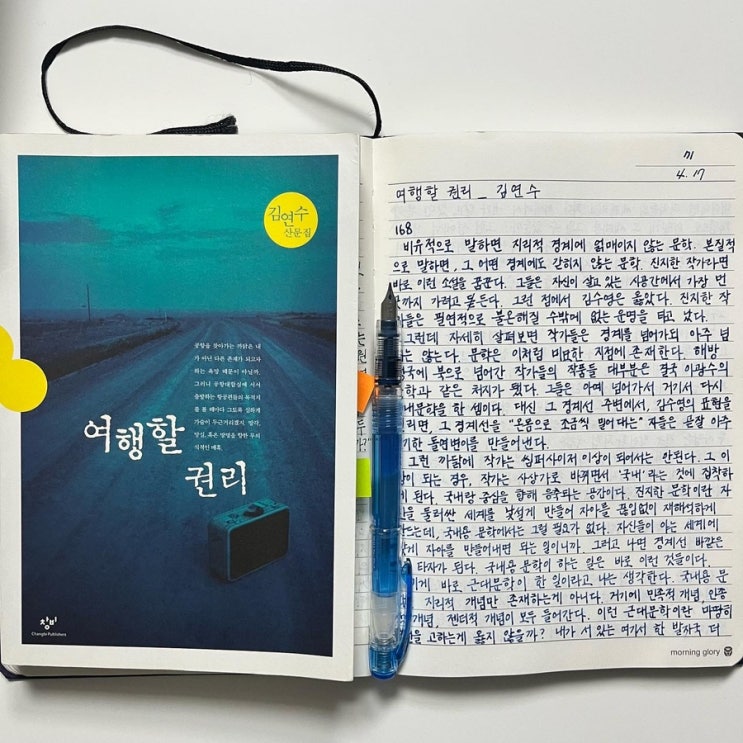 김연수
산문집
공항을 찾아가는 까닭은 내
가 아닌 다른 존재가 되고자
하는 욕망 때문이 아닐까.
그러니 공항대합실에 서서
출발하는 항공편들의 목적지
를 볼 때마다 그토록 심하게
가슴이 두근거리겠지. 망각,
망실, 혹은 망명을 향한 무의
식적인 매혹.
여행할
권리
창비
Changbi Publishers
4. 17
여행할 권리 _ 김연수
168
비유적으로 말하면 지리적 경계에 얽매이지 않는 문학. 본질적
으로 말하면, 그 어떤 경계에도 갇히지 않는 문학. 진지한 작가라면
바로 이런 소망을 꿈꾼다. 그들은 자신이 살고 있는 시공간에서 가장 먼
까지 가려고 든다. 그런 점에서 김수영은 옳았다. 진지한 작
들은 필연적으로 불온해질 수밖에 없는 운명을 타고 났다.
그런데 자세히 살펴보면 작가들은 경계를 넘어가되 아주 넘
는 않는다. 문학은 이처럼 미묘한 지점에 존재한다. 해방
국에 북으로 넘어간 작가들의 작품들 대부분은 결국 이광수의
학과 같은 처지가 됐다. 그들은 아예 넘어가서 거기서 다시
문학을 한 셈이다. 대신 그 경계선 주변에서, 김수영의 표현을
면, 그 경계선을 "온몸으로 조금씩 밀어내는" 자들은 아주
기한 돌연변이를 만들어낸다.
그런 까닭에 작가는 씸퍼사이저 이상이 되어서는 안된다. 그 이
이 되는 경우, 작가는 사상가로 바뀌면서 '국내'라는 것에 집착하
된다. 국내란 중심을 향해 응축되는 공간이다. 진지한 문학이란 자
을 둘러싼 세계를 낯설게 만들어 자아를 끊임없이 재해석하게
드는데, 국내용 문학에서는 그럴 필요가 없다. 자신들이 아는 세계에
게 자아를 만들어내면 되는 일이니까. 그러고 나면 경계선 바깥은
타자가 된다. 국내용 문학이 하는 일은 바로 이런 것들이다.
게 바로 근대문학이 한 일이라고, 나는 생각한다. 국내용 문
지리적 개념만 존재하는게 아니다. 거기에 민족적 개념, 인종
개념, 젠더적 개념이 모두 들어간다. 이런 근대문학이란 마땅히
을 고하는게 옳지 않을까? 내가 서 있는 여기서 한 발자국 더
morning glory